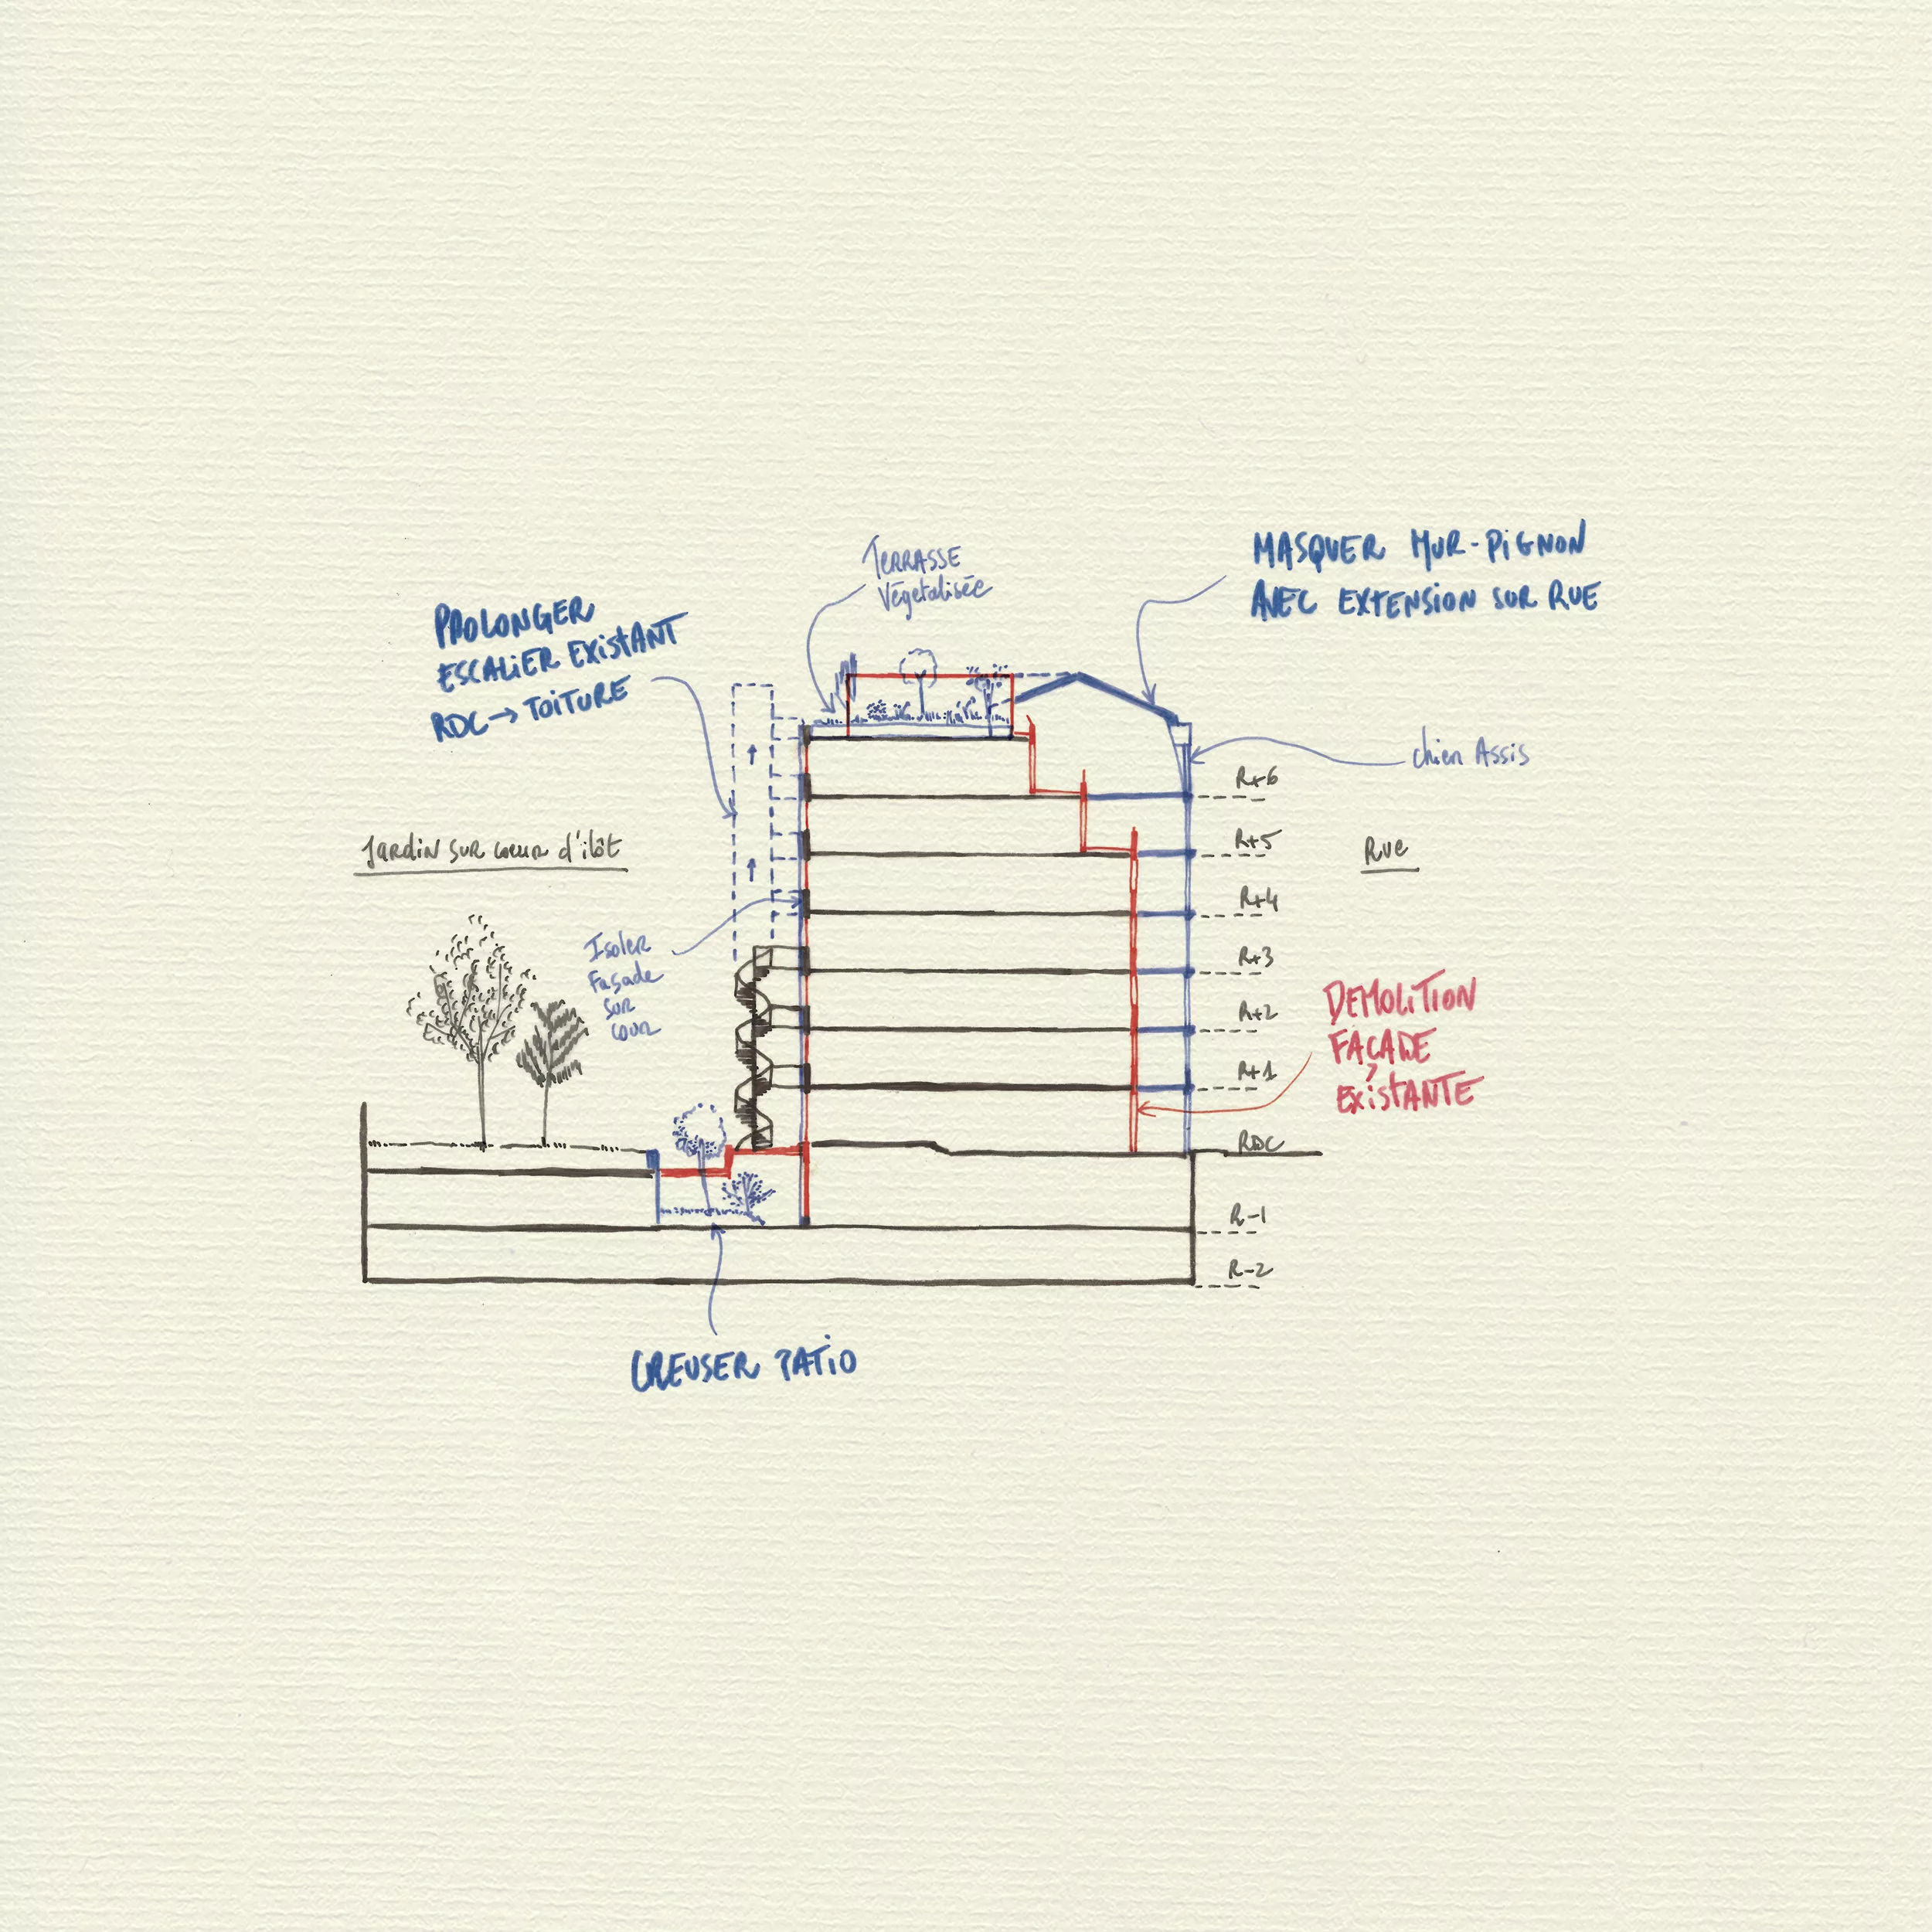 TERRASSE
Végétalisée
MASQUER MUR-PiGNON
AVEC EXTENSION SUR RUE
PROLONGER
ESCALiER EXiStANT
RDC → TOiTURE
chien Assis
R+6
Jardin sur coeur d'ilôt
R+5
Rue
R+4
Isoler
Façade
sur
cour
R+3
R+2
DEMOLITION
FAÇADE
EXiStANTE
R+1
RDC
R-1
R-2
CREUSER PATiO